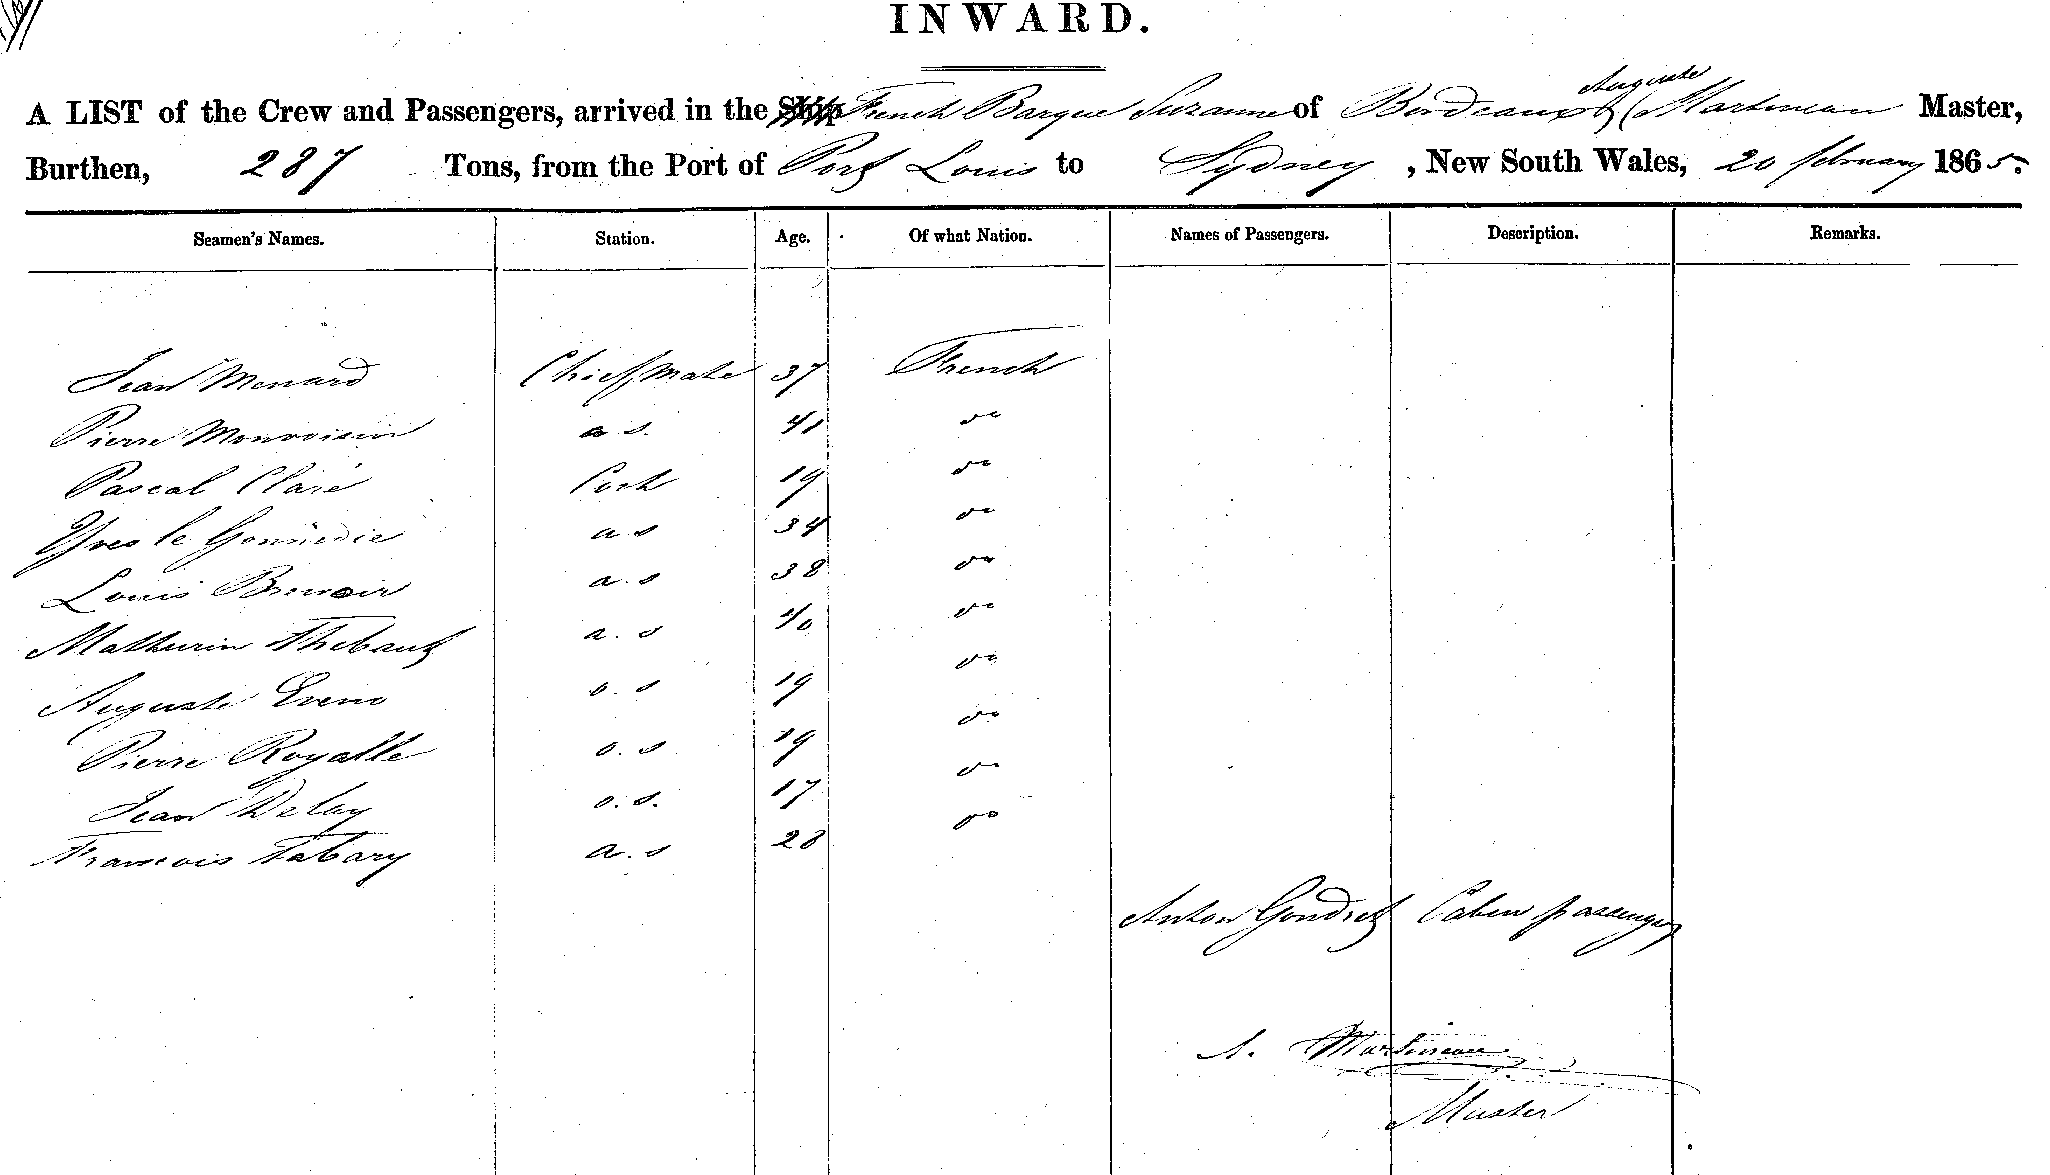 INWARD.
A LIST of the Crew and Passengers, arrived in the Ship French Barque Suzanne of Bordeaux Auguste Martineau Master,
Burthen, 287 Tons, from the Port of Port Louis to Sydney, New South Wales, 20 february 1865.
Seamen's Names. Station. Age. Of what Nation. Names of Passengers. Description. Remarks.
Jean Menard Chief Mate 37 French
Pierre Monvoisin a s. 41 do
Pascal Clare Cook 19 do
Yves le a s 34 do
Louis a. s 38 do
Mathurin Thebaut a. s 40 do
Auguste Eveno o. s 19 do
Pierre Royalle o. s 19 do
Jean Delay o. s. 17 do
Francois Tabary a. s 28 do
Anton Gondret Caben passenger
A. Martineau
Master